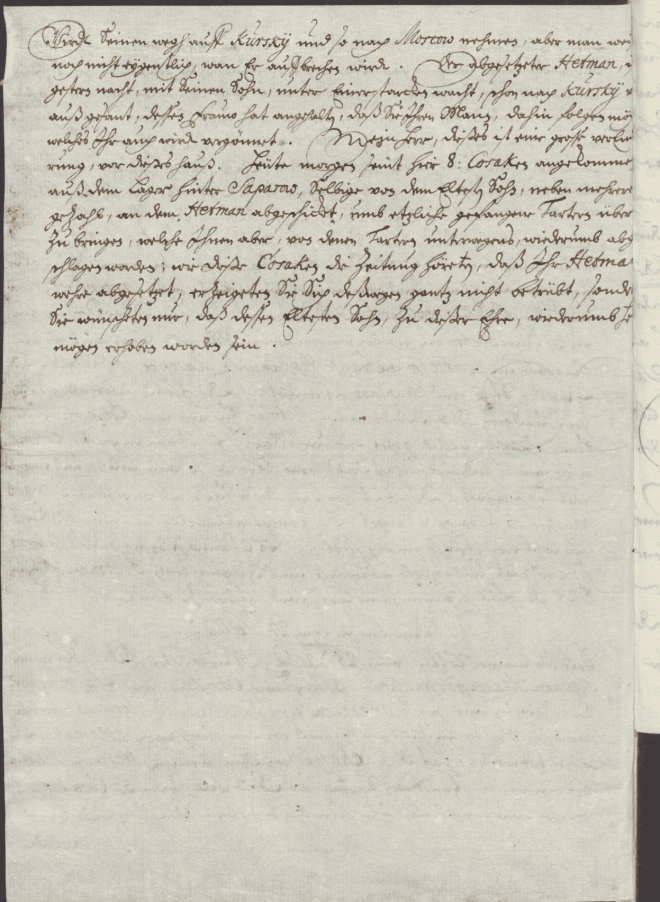 Wirdt Seinen wegh auff Kursky und so nach Moscow nehmen, aber man wei
noch nicht eigentlich, wan Er auffbrechen wird. Der abgesetzter Hetman, i
gestern nacht, mit Seinen Sohn, unter Einer starcken wacht, schon nach Kursky
außgesant, dessen Frauw hat angehalten, daß Sie Ihren Mann, dahin folgen mö
welches Ihr auch wird vergönnet. Mein Herr, dießes ist eine große verlie
rung, vor dießes hauß. Heute morgen seint hier 8: Cosaken angekomme
auß dem Lager hinter Saparow, Selbige von dem Eltesten Sohn, neben mehrere
gezahl, an dem Hetman abgeschicket, umb etzliche gefangene Tartern über
zu bringen, welche Ihnen aber, von denen Tartern unterwegens, wiederumb abg
schlagen worden; wie dieße Cosaken die Zeitung höreten, daß Ihr Hetma
wehre abgesetzet, erzeigeten Sie Sich deßwegen gantz nicht betrübt, sonde
Sie wünscheten nur, daß dessen Eltesten Sohn, zu dießer Ehre, wiederumb
mögen erhoben worden sein.